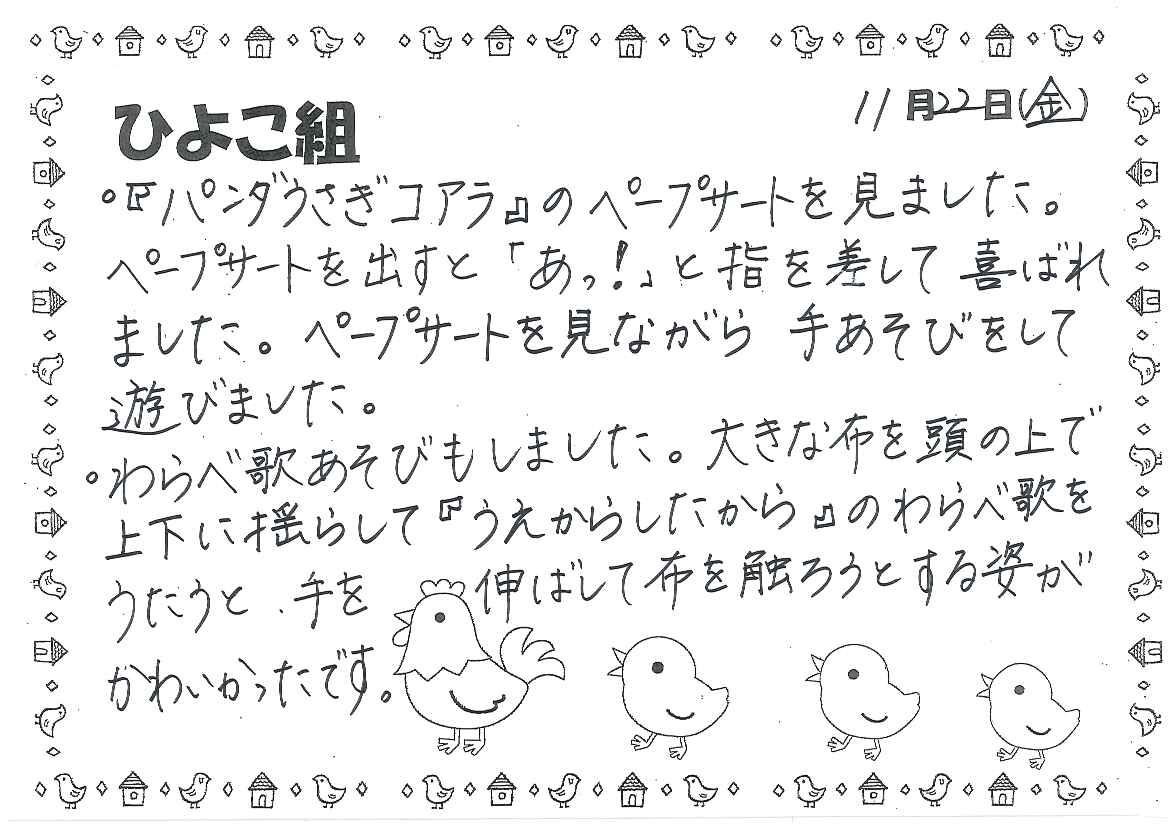 ひよこ組
11月22日(金)
。『パンダうさぎコアラ』のペープサートを見ました。
ペープサートを出すと「あっ!」と指を差して喜ばれ
ました。ペープサートを見ながら手あそびをして
遊びました。
。わらべ歌あそびもしました。大きな布を頭の上で
上下に揺らして『うえからしたから』のわらべ歌を
うたうと、手を伸ばして布を触ろうとする姿が
かわいかったです。